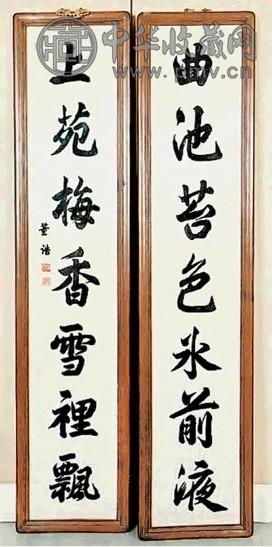 中华收藏网
曲池苔色冰前液
上苑梅香雪裡飄
董誥